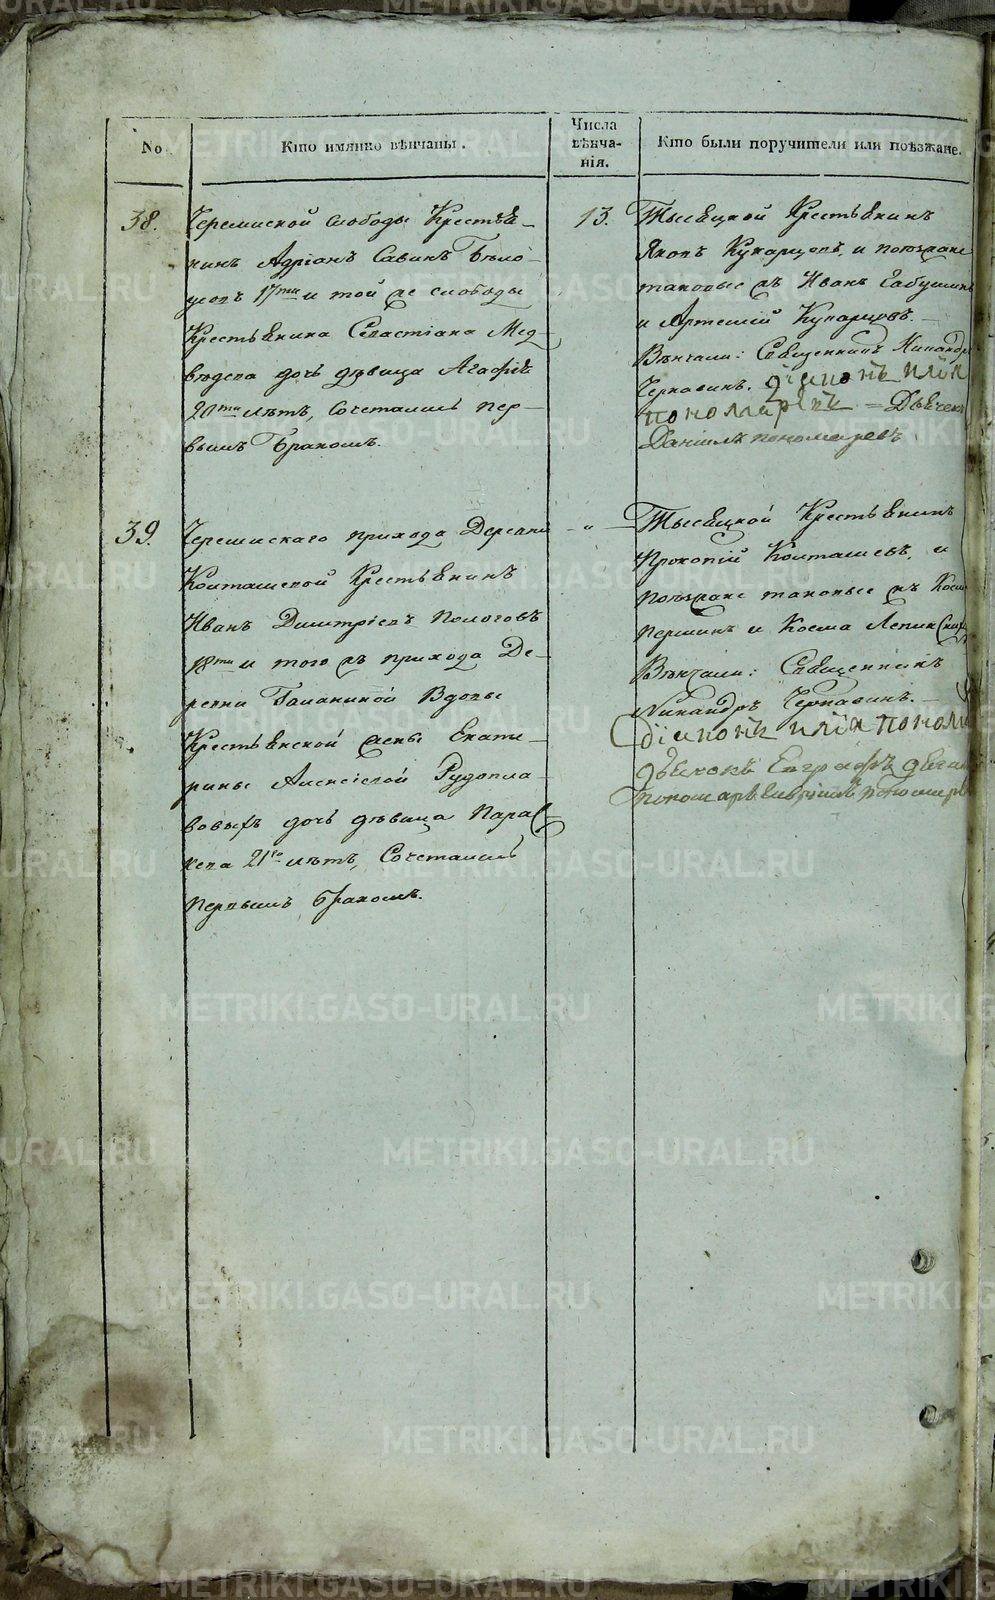 No
Кто имянно вѣнчаны.
Числа
вѣнча-
нія.
Кто были поручители или поѣзжане.
38.
Черемиской слободы Крестья-
нинъ Адріанъ Савинъ Бѣло-
усовъ 17ти и той же слободы
Крестьянина Севастіана Мед-
вѣдева дочь дѣвица Агафія
20ти лѣтъ, сочетались пер-
вымъ Бракомъ.
13.
Тысяцкой Крестьянинъ
Яковъ Кукарцовъ, и поѣзжане
таковые жъ Иванъ Бабушкинъ
и Артемій Кукарцовъ.
Вѣнчали: Священникъ Никандръ
Чернавинъ. діаконъ илія
пономаревъ = Дьячекъ
Даніилъ пономаревъ
39.
Черемискаго прихода Деревни
Колташевой Крестьянинъ
Иванъ Димитріевъ Пологовъ
18ти и того жъ прихода Де-
ревни Галаниной Вдовы
Крестьянской жены Екате-
рины Алексіевой Рудопла-
вовыхъ дочь дѣвица Парас-
кева 21го лѣтъ, Сочетались
первымъ бракомъ.
"
Тысяцкой Крестьянинъ
Прокопій Колташевъ, и
поѣзжане таковые жъ Косма
Першинъ и Косма Лепин
Вѣнчали: Священникъ
Никандръ Чернавинъ.
діаконъ илія поном
дьяконъ Евграфъ
METRIKI.GASO-URAL.RU